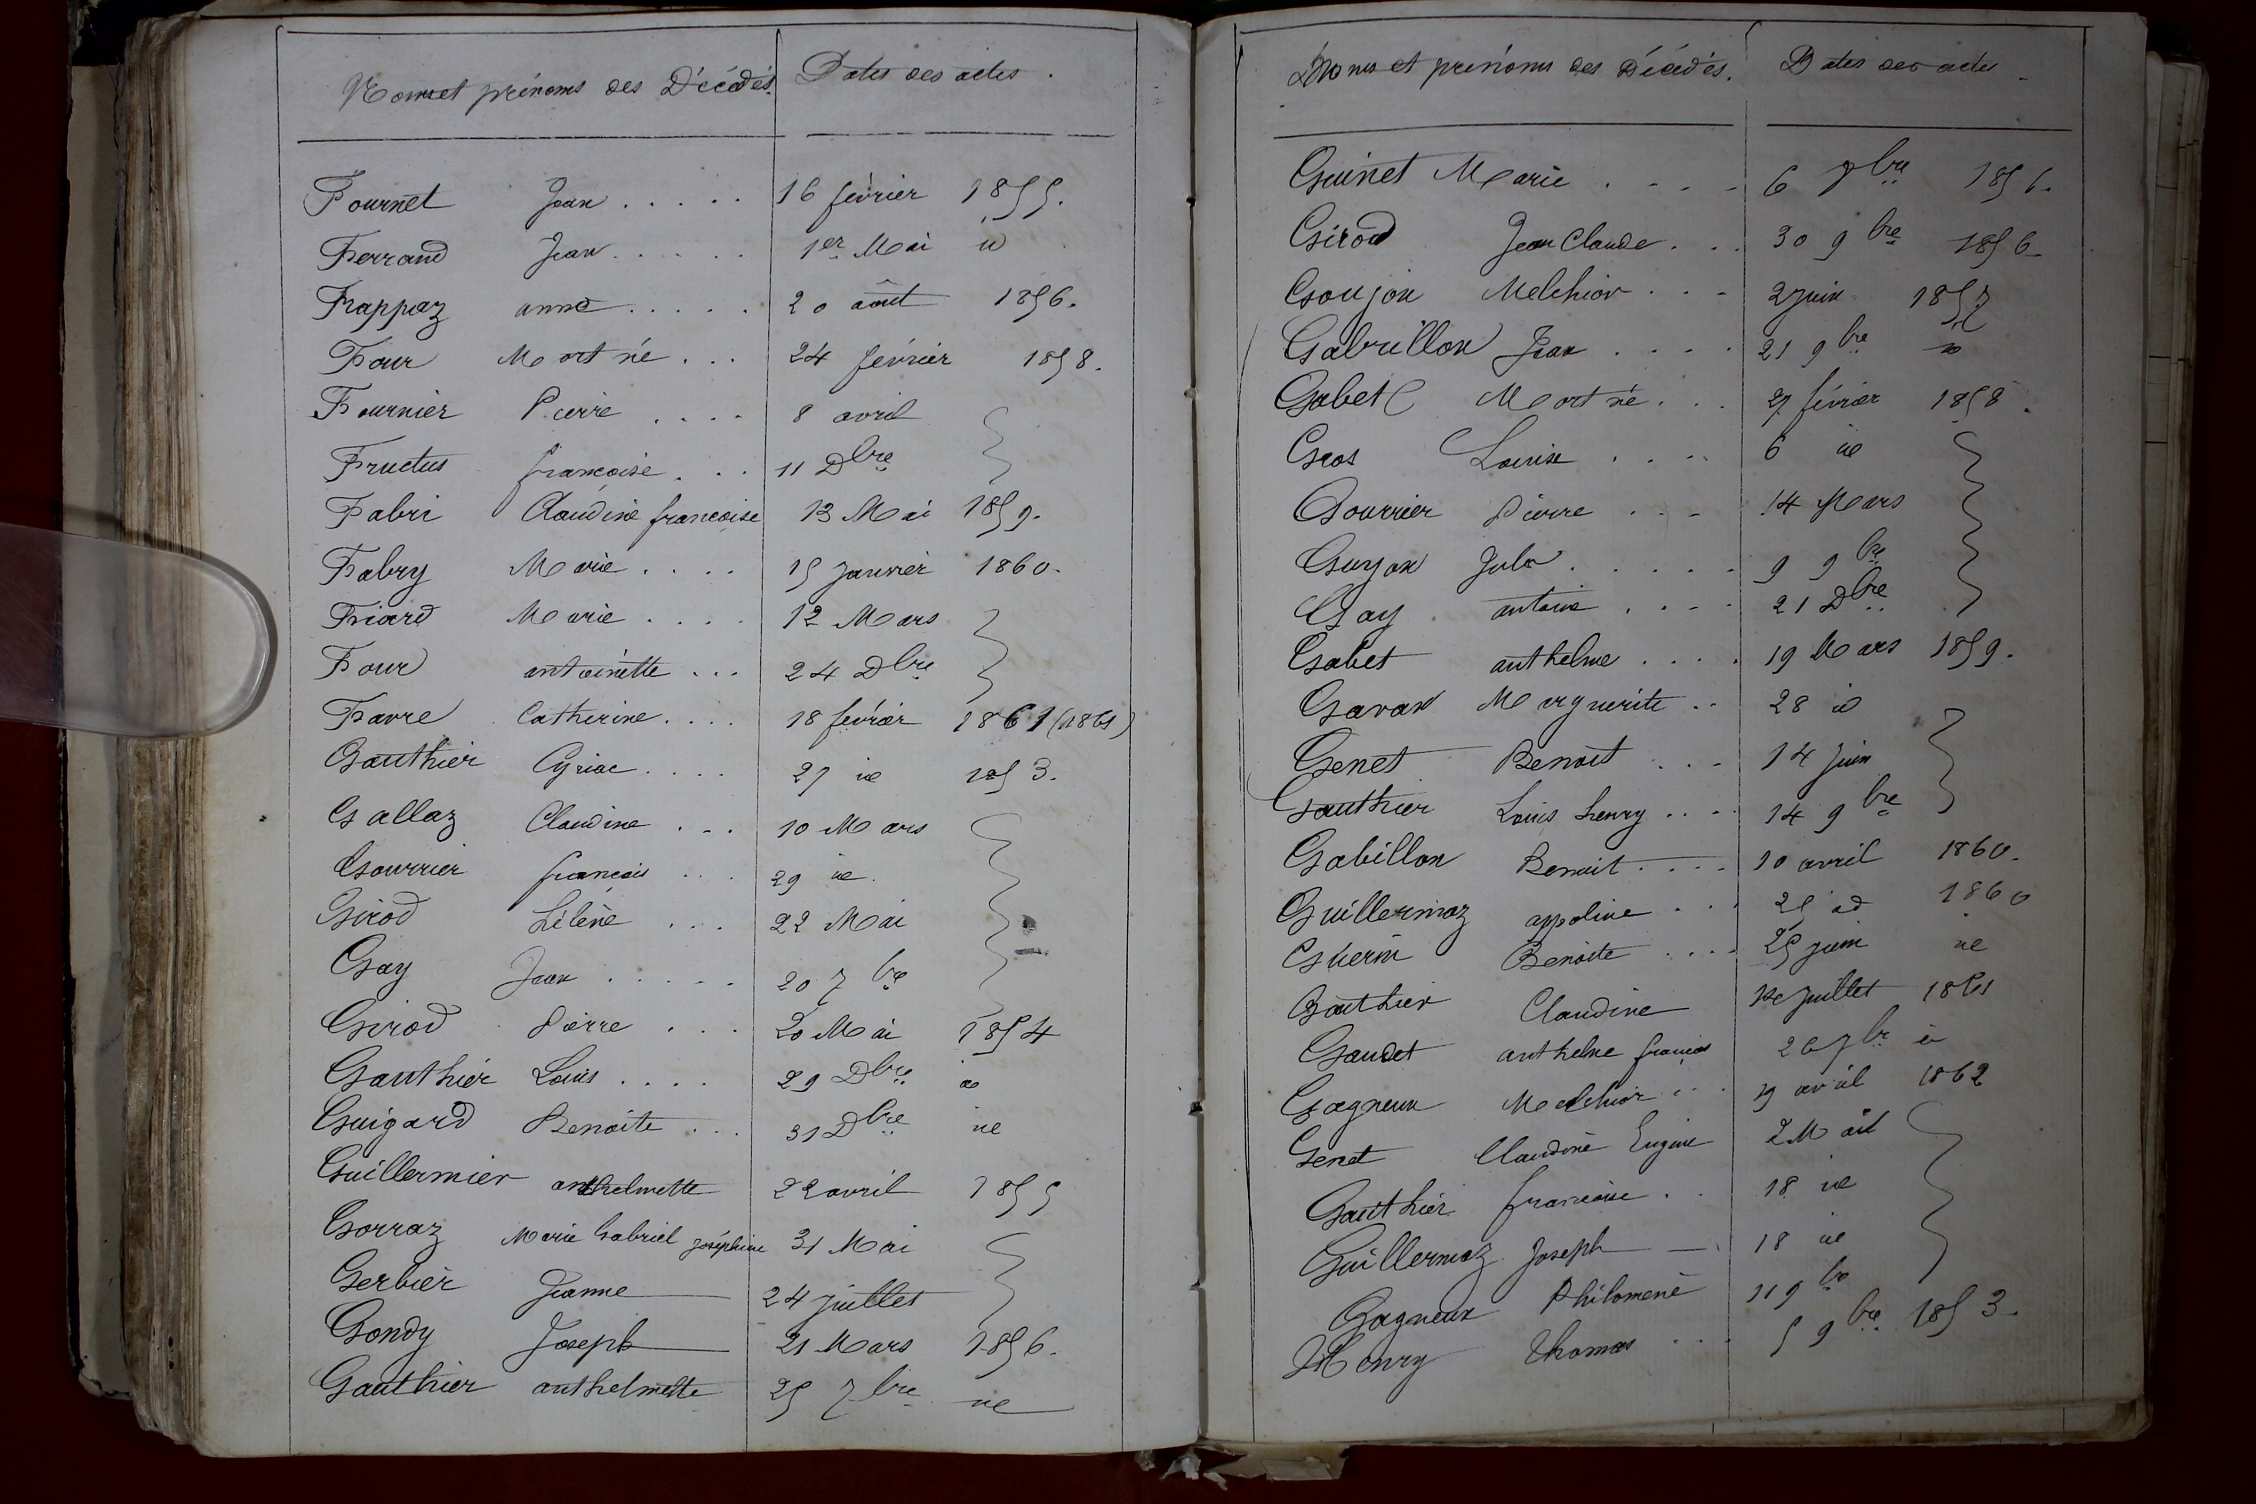 Noms et prénoms des Décédés. Dates des actes.
Fournet Jean ..... 16 février 1855.
Ferrand Jean ..... 1er Mai id
Frappaz anne ..... 20 août 1856.
Four Mort né ... 24 février 1858.
Fournier Pierre .... 8 avril
Fructus françoise ... 11 Dbre
Fabri Claudine françoise 13 Mai 1859.
Fabry Marie .... 15 Janvier 1860.
Friard Marie .... 12 Mars
Four antoinette ... 24 Dbre
Favre Catherine .... 18 février 1861 (1861)
Gauthier Cyriac .... 27 id 1853.
Gallaz Claudine ... 10 Mars
Gourrier françois ... 29 id.
Girod Hélène ... 22 Mai
Gay Jean ..... 20 7bre
Girod Pierre ... 20 Mai 1854
Gauthier Louis .... 29 Dbre id
Guigard Benoite ... 31 Dbre id
Guillermier anthelmette 22 avril 1855
Gorraz Marie Gabriel Joséphine 31 Mai
Gerbier Jeanne 24 juillet
Gondy Joseph 21 Mars 1856.
Gauthier anthelmette 25 7bre id
Noms et prénoms des Décédés. Dates des actes
Guinet Marie .... 6 7bre 1856.
Girod Jean Claude ... 30 9bre 1856
Goujon Melchior ... 2 juin 1857
Gabrillon Jean .... 21 9bre id
Gobet Mort né ... 27 février 1858.
Gros Louise .... 6 id
Gourrier Pierre ... 14 Mars
Guyon Jules ..... 9 9bre
Gay antoine .... 21 Dbre
Gabet anthelme .... 19 Mars 1859.
Gavan Marguerite .. 28 id
Genet Benoit ... 14 Juin
Gauthier Louis henry .... 14 9bre
Gabillon Benoit .... 10 avril 1860.
Guillermoz appoline ... 25 id 1860
Guerin Benoite .... 25 juin id
Gauthier Claudine juillet 1861
Gaudet anthelme françois 26 7bre id
Gagneux Melchior ... 19 avril 1862
Genet Claudine Eugine 2 Mai
Gauthier françoise .. 18 id
Guillermoz Joseph 18 id
Gagneux Philomene 11 9bre
Henry Thomas ... 5 9bre 1853.